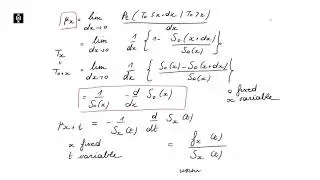 μx = lim dx→0 Pr(T0 ≤ x+dx | T0 > x) / dx
Tx = lim dx→0 1/dx { 1 - S0(x+dx) / S0(x) }
T0+x = lim dx→0 1/dx { S0(x) - S0(x+dx) / S0(x) }
= 1/S0(x) - d/dx S0(x)
0 fixed
x variable
μx+t = - 1/Sx(t) d/dt Sx(t)
x fixed
t variable
= fx(t) / Sx(t)